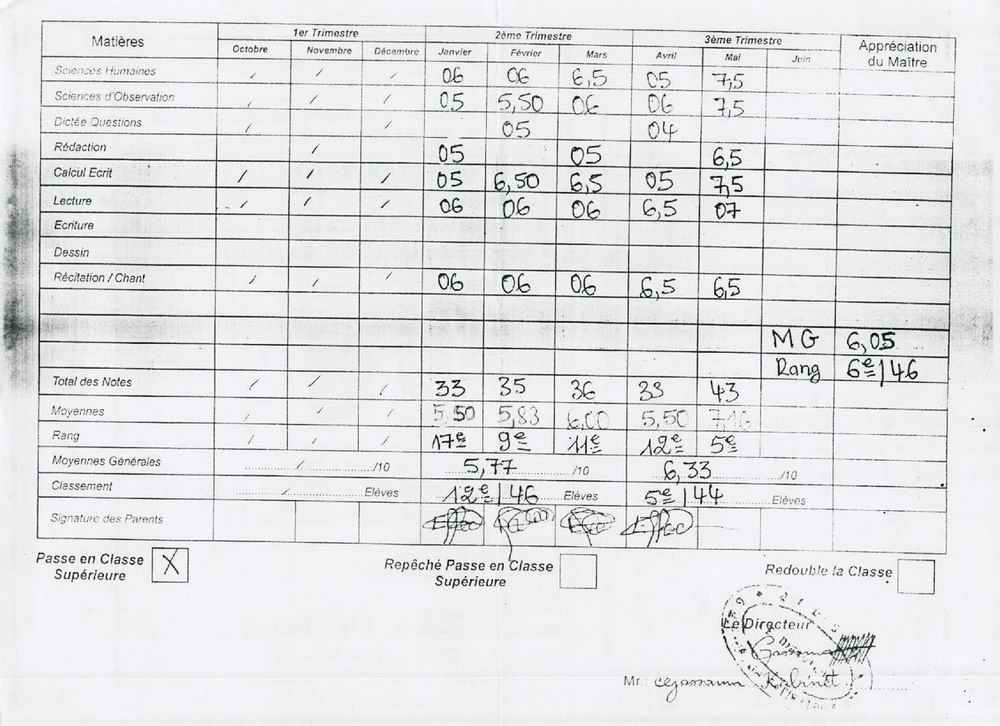 Matières 1er Trimestre 2ème Trimestre 3ème Trimestre Appréciation du Maître
Octobre Novembre Décembre Janvier Février Mars Avril Mai Juin
Sciences Humaines / / / 06 06 6,5 05 7,5
Sciences d'Observation / / / 05 5,50 06 06 7,5
Dictée Questions / / 05 04
Rédaction / 05 05 6,5
Calcul Ecrit / / / 05 6,50 6,5 05 7,5
Lecture / / / 06 06 06 6,5 07
Ecriture
Dessin
Récitation / Chant / / / 06 06 06 6,5 6,5
MG 6,05
Rang 6e/46
Total des Notes / / / 33 35 36 33 43
Moyennes / / / 5,50 5,83 6,00 5,50 7,16
Rang / / / 17e 9e 11e 12e 5e
Moyennes Générales / /10 5,77 /10 6,33 /10
Classement / Elèves 12e/46 Elèves 5e/44 Elèves
Signature des Parents
Passe en Classe Supérieure X
Repêché Passe en Classe Supérieure
Redouble la Classe
Le Directeur
Mr. Kabinet